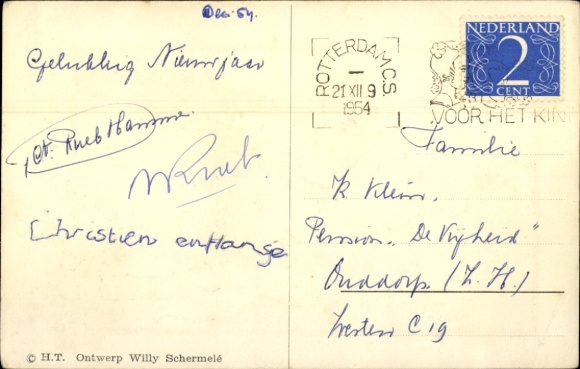 Dec. 54.
Gelukkig Nieuwjaar
Christien en Hansje
© H.T. Ontwerp Willy Schermelé
NEDERLAND
2
CENT
ROTTERDAM C.S.
21 XII 9
1954
VOOR HET KIN
Familie
K Klein.
Pension „De Vijheid"
Ouddorp. (Z.H.)
C 19